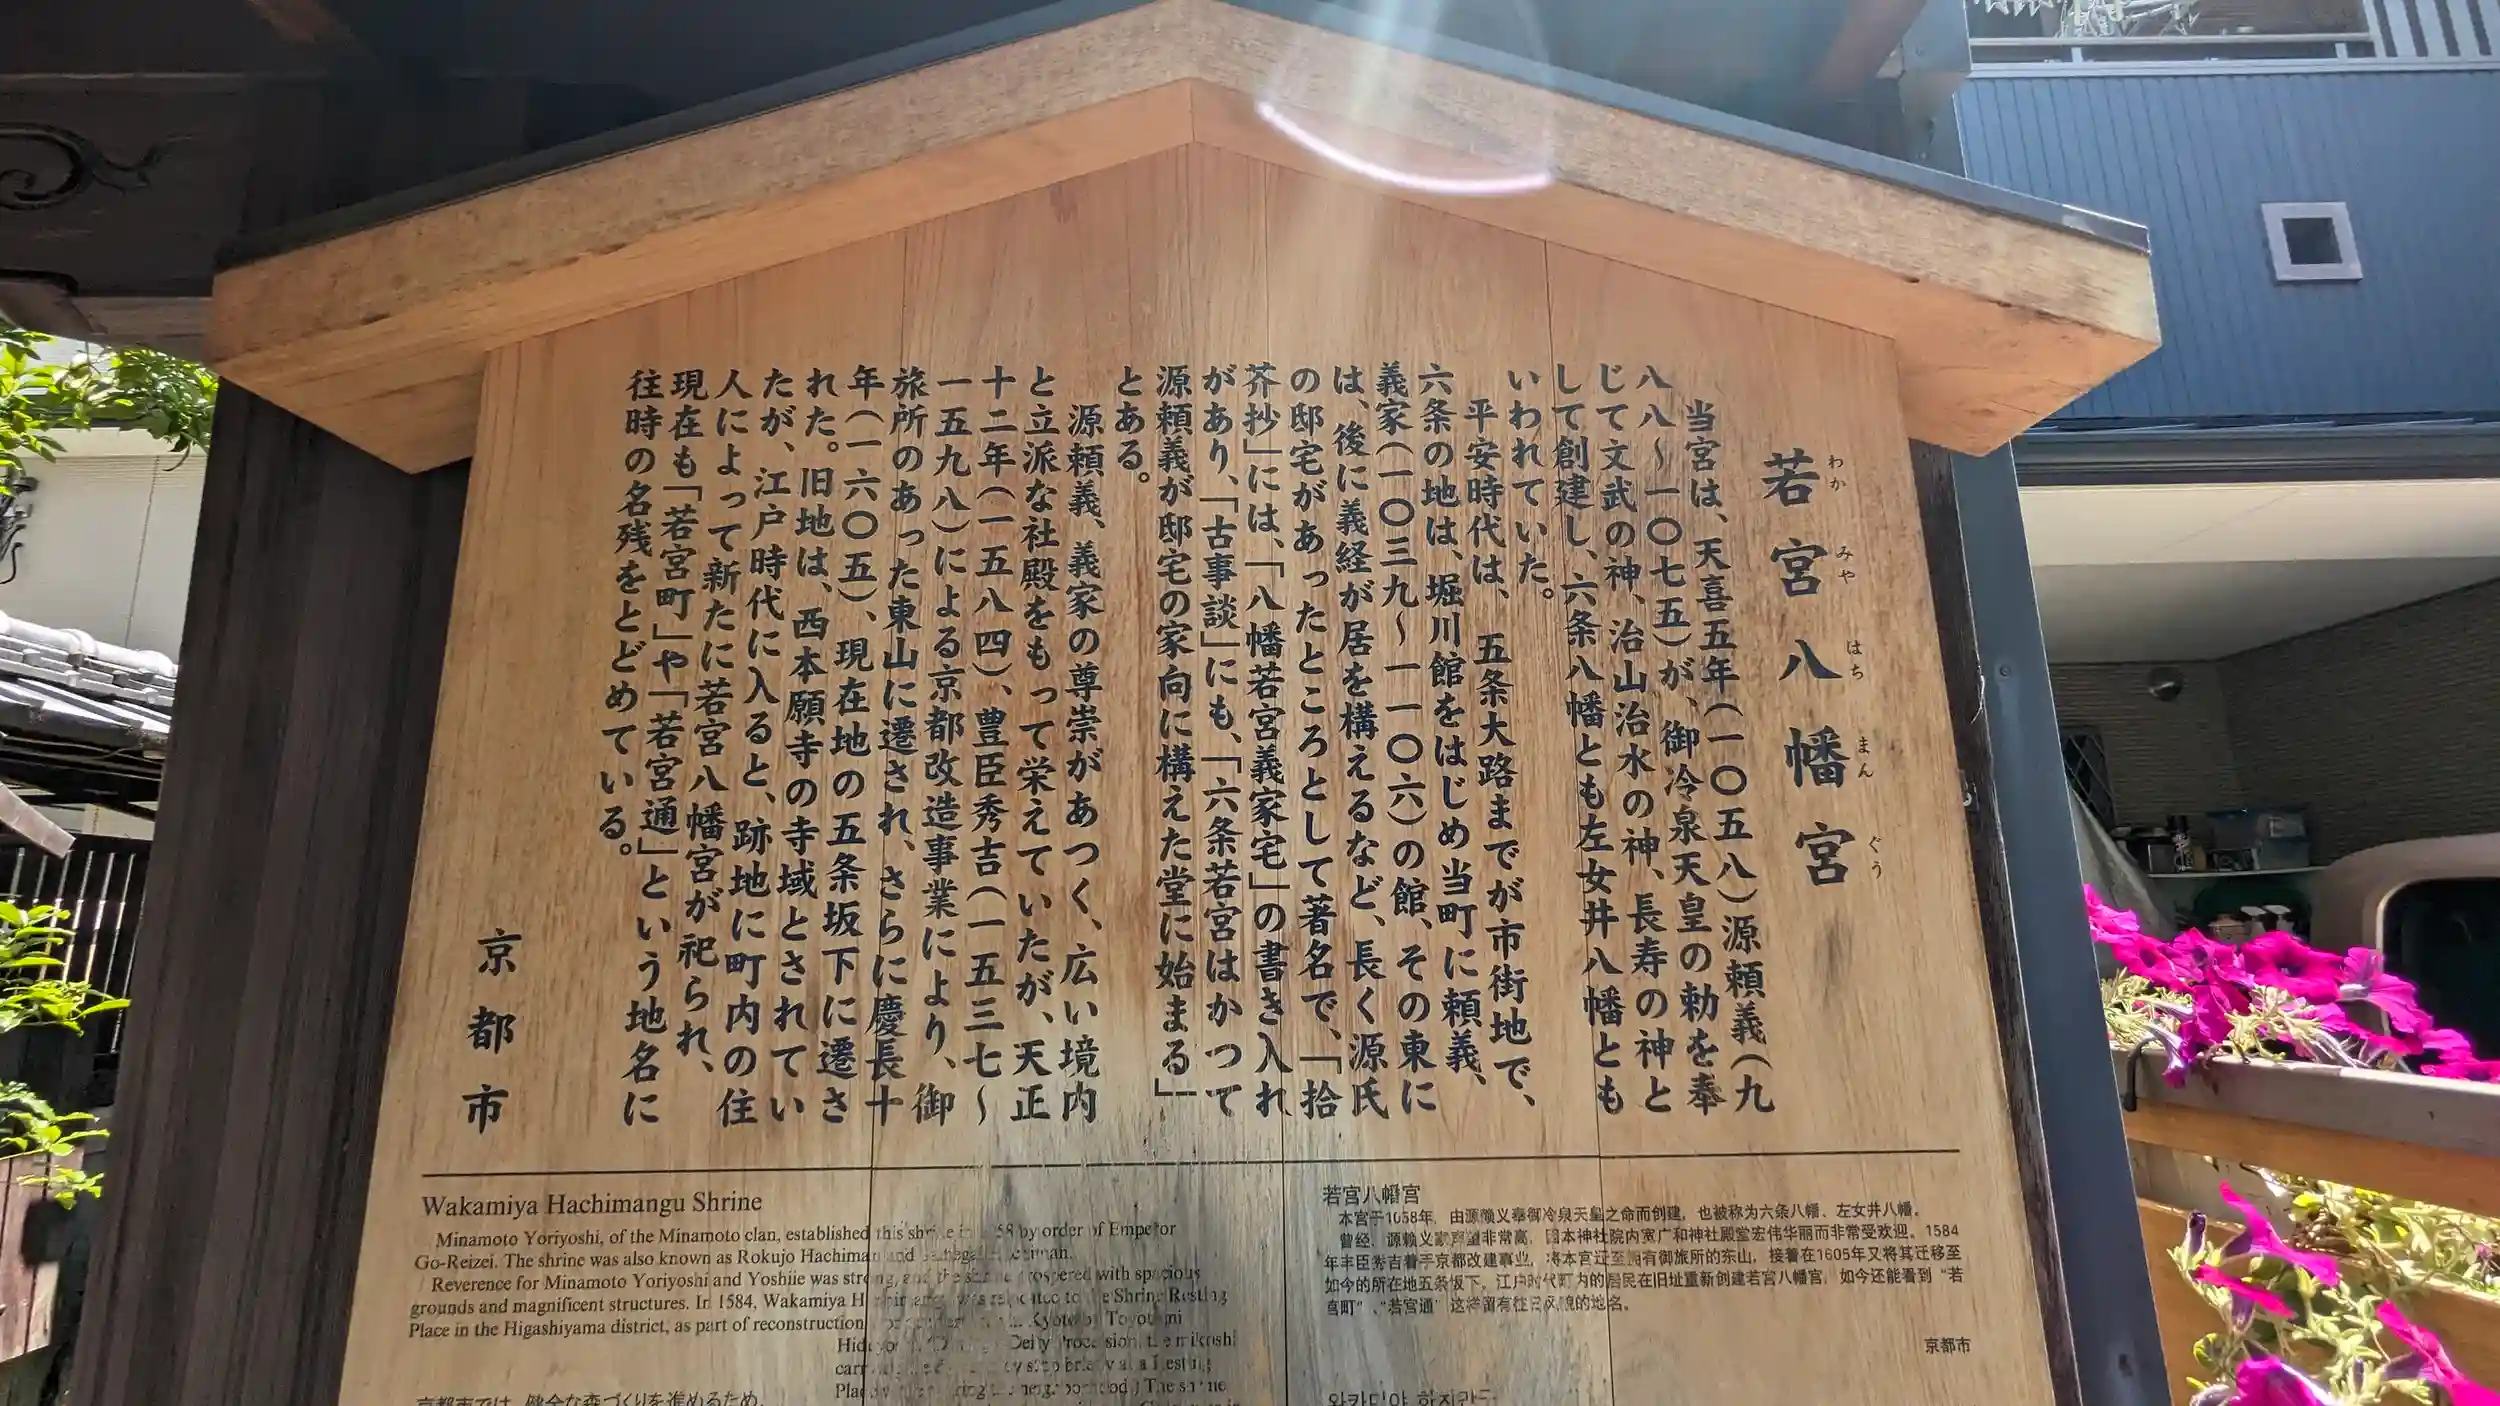 若宮八幡宮
わかみやはちまんぐう
当宮は、天喜五年(一〇五八)源頼義(九
八八〜一〇七五)が、御冷泉天皇の勅を奉
じて文武の神、治山治水の神、長寿の神と
して創建し、六条八幡とも左女井八幡とも
いわれていた。
平安時代は、五条大路までが市街地で、
六条の地は、堀川館をはじめ当町に頼義、
義家(一〇三九〜一一〇六)の館、その東に
は、後に義経が居を構えるなど、長く源氏
の邸宅があったところとして著名で、「拾
芥抄」には、「八幡若宮義家宅」の書き入れ
があり、「古事談」にも、「六条若宮はかつて
源頼義が邸宅の家向に構えた堂に始まる」
とある。
源頼義、義家の尊崇があつく、広い境内
と立派な社殿をもって栄えていたが、天正
十二年(一五八四)、豊臣秀吉(一五三七〜
一五九八)による京都改造事業により、御
旅所のあった東山に遷され、さらに慶長十
年(一六〇五)、現在地の五条坂下に遷さ
れた。旧地は、西本願寺の寺域とされてい
たが、江戸時代に入ると、跡地に町内の住
人によって新たに若宮八幡宮が祀られ、
現在も「若宮町」や「若宮通」という地名に
往時の名残をとどめている。
京都市
Wakamiya Hachimangu Shrine
Minamoto Yoriyoshi, of the Minamoto clan, established this shrine in by order of Emperor
Go-Reizei. The shrine was also known as Rokujo Hachiman and
Reverence for Minamoto Yoriyoshi and Yoshiie was strong, and the shrine prospered with spacious
grounds and magnificent structures. In 1584, Wakamiya was relocated to the Shrine Resting
Place in the Higashiyama district, as part of reconstruction Kyoto by Toyotomi
Deity Procession, the mikoshi
briefly at a Resting
The shrine
若宫八幡宫
本宫于1058年，由源赖义奉御冷泉天皇之命而创建，也被称为六条八幡、左女井八幡。
曾经，源赖义家声望非常高，因本神社院内宽广和神社殿堂宏伟华丽而非常受欢迎。1584
年丰臣秀吉着手京都改建事业，将本宫迁至拥有御旅所的东山，接着在1605年又将其迁移至
如今的所在地五条坂下。江户时代町内的居民在旧址重新创建若宫八幡宫，如今还能看到“若
宫町”、“若宫通”这样留有往日风貌的地名。
京都市
京都市では、健全な森づくりを進めるため、